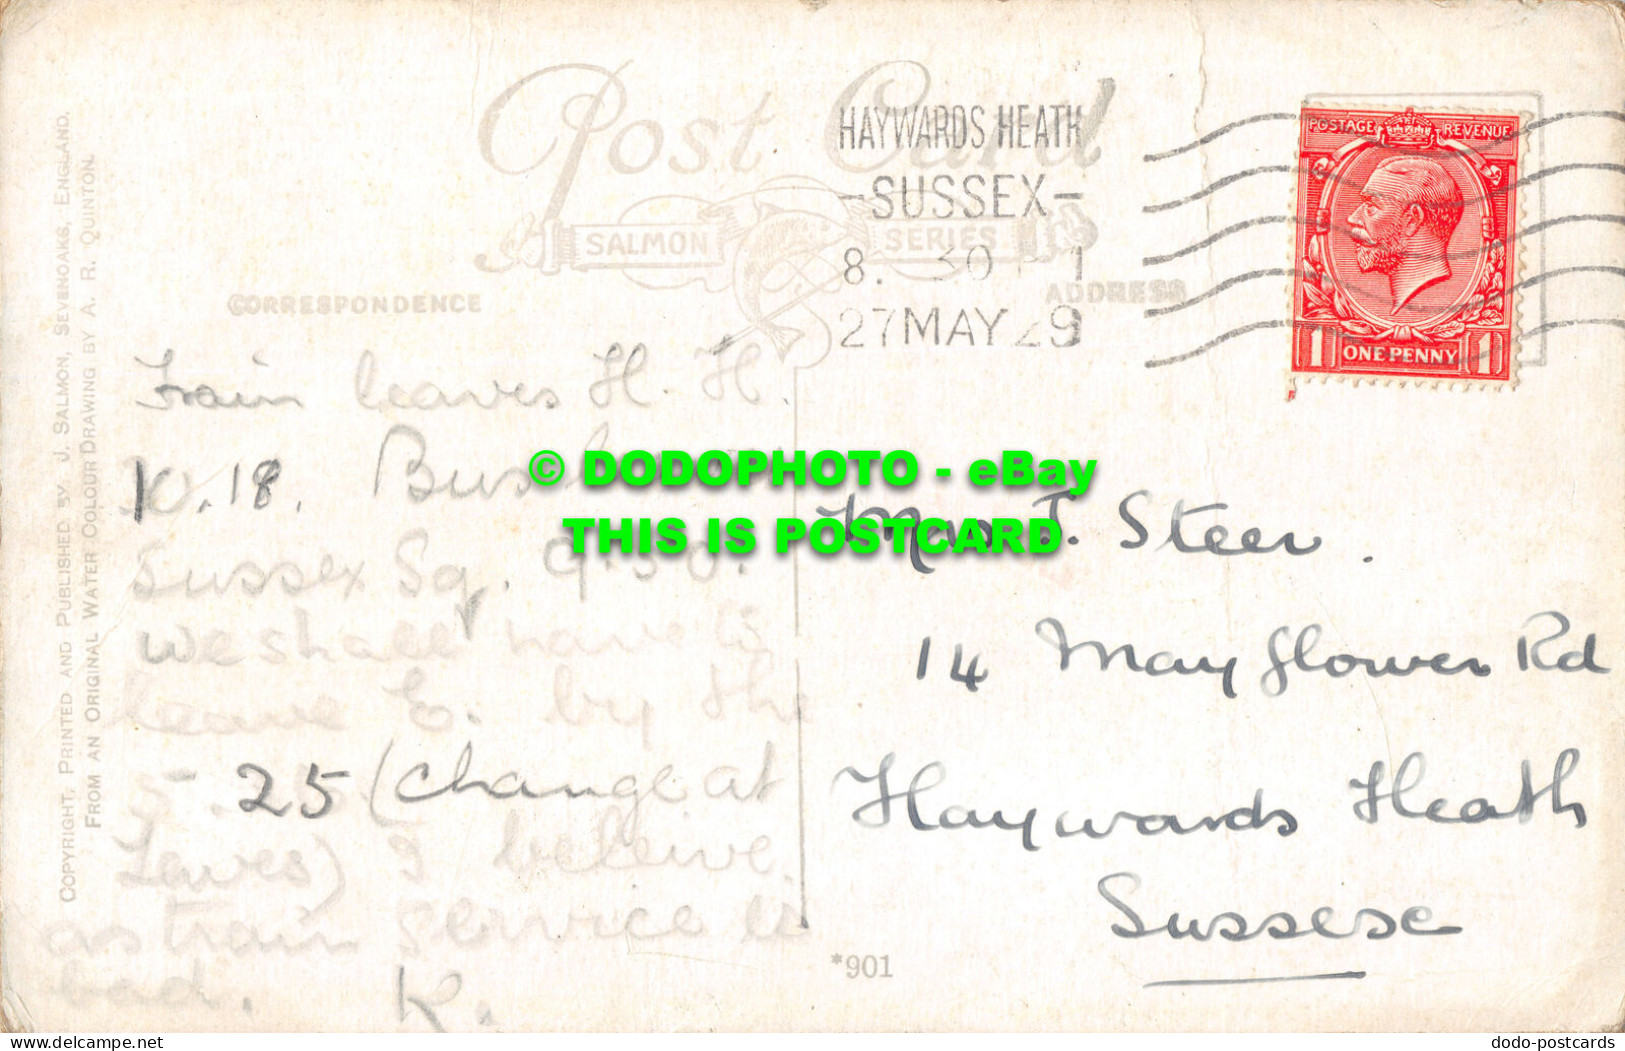 Post Card
SALMON SERIES
HAYWARDS HEATH
-SUSSEX-
8. 30 PM
27 MAY 29
POSTAGE REVENUE
1 ONE PENNY 1
CORRESPONDENCE
ADDRESS
Train leaves H. H.
10.18.
Sussex Sq. 9.50.
we shall have to
leave E. by the
5-25 (change at
Lewes) I beleive.
as train service is
bad. K.
Mrs J. Steer.
14 Mayflower Rd
Haywards Heath
Sussex
*901
COPYRIGHT, PRINTED AND PUBLISHED BY J. SALMON, SEVENOAKS, ENGLAND.
FROM AN ORIGINAL WATER COLOUR DRAWING BY A. R. QUINTON.
© DODOPHOTO - eBay
THIS IS POSTCARD
delcampe.net
dodo-postcards